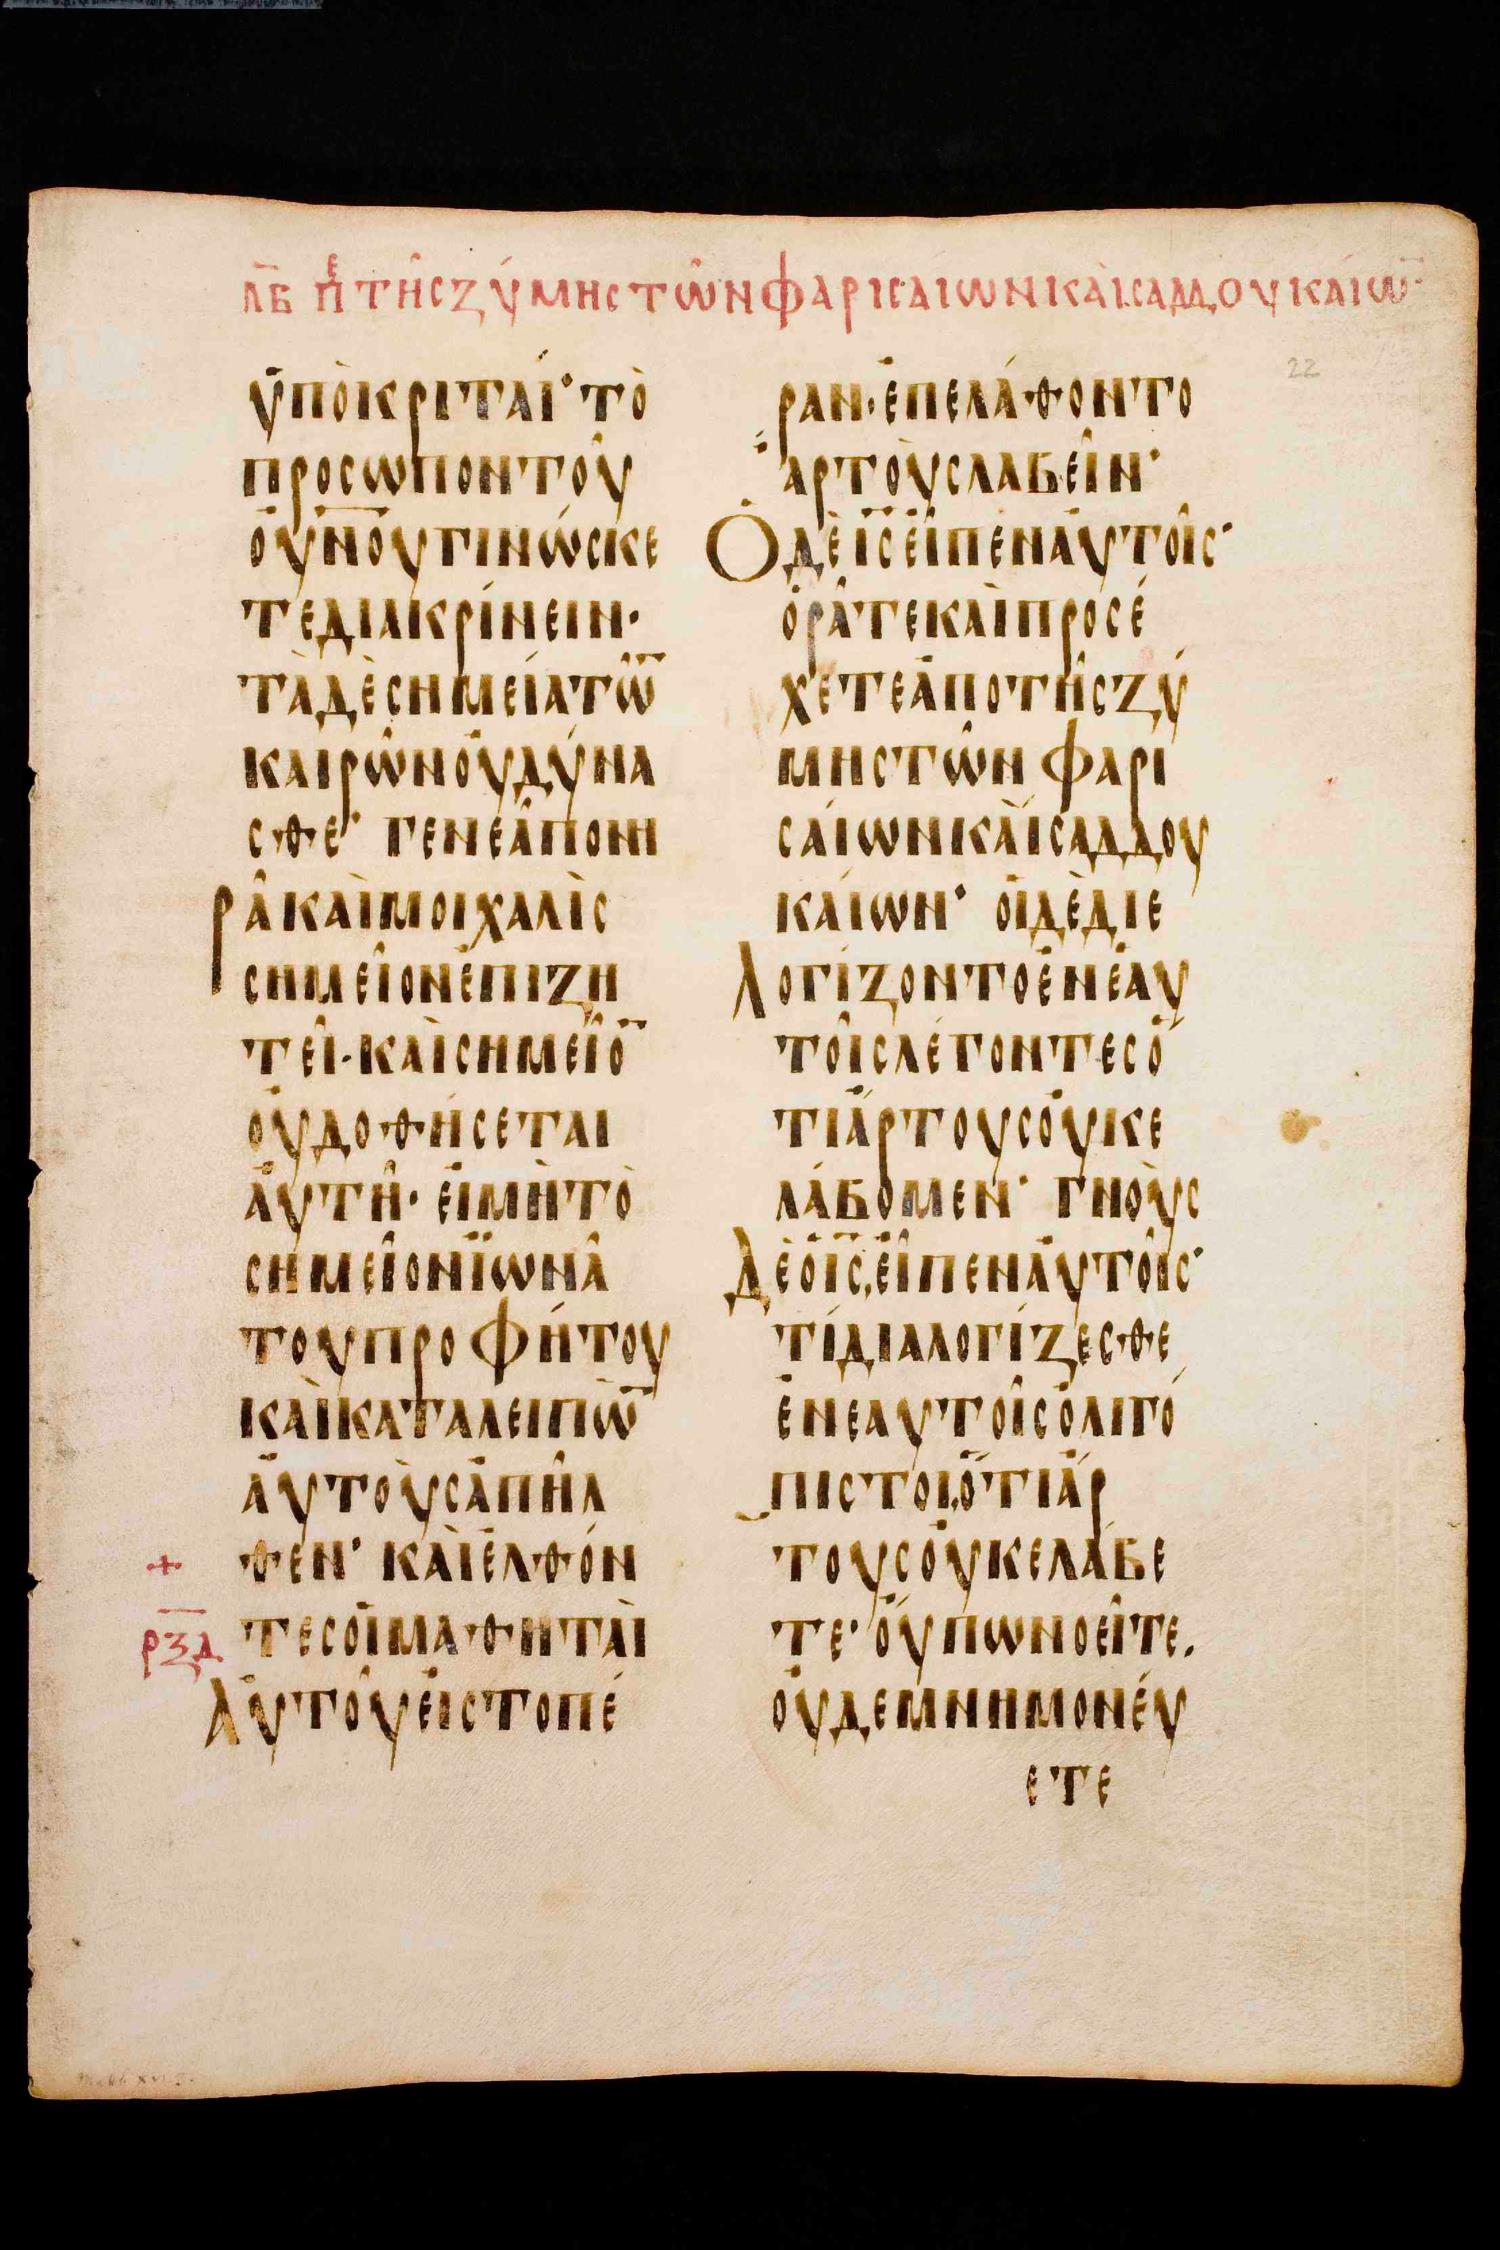 λ̅β̅ πε τῆς ζύμης τῶν φαρισαίων καὶ σαδδουκαίω̅·
22
ὑποκριταί· τὸ
προσωπον τοῦ
ου̅ν̅ο̅υ γινώσκε
τε διακρίνειν·
τὰ δὲ σημεία τῶ̅
καιρῶν οὐ δύνα
σθε· γενεὰ πονη
ρᾶ καὶ μοιχαλὶς
σημεῖον ἐπιζη
τεῖ· καὶ σημεῖο̅
οὐ δοθήσεται
ἀυτῆ· εἰ μὴ τὸ
σημεῖον ϊωνᾶ
του προφήτου
καὶ καταλειπὼ̅
ἀυτοὺς ἀπῆλ
θεν· καὶ ἐλθόν
τες οἱ μαθηταὶ
+
ρ̅ξ̅δ̅
ἀυτοῦ εἰς το πέ
ραν· ἐπελάθοντο
ἄρτοὺς λαβεῖν·
Ὁ δὲ ι̅ς̅ εἶπεν ἀυτοῖς·
ὁρᾶτε καὶ προσέ
χετε ἀπο τῆς ζύ
μης τῶν φαρι
σαίων καὶ σαδδου
καίων· οἱ δὲ διε
λογίζοντο ἐν ἑαυ
τοῖς λέγοντες ὅ
τι ἄρτους οὐκ ε
λάβομεν· γνοὺς
δὲ ὁ ι̅ς̅, εἶπεν ἀυτοῖς·
τί διαλογίζεσθε
ἐν εαυτοῖς ὀλιγό
πιστοι, ὅτι ἄρ
τους οὐκ ελάβε
τε· οὔπω νοεῖτε.
οὐδε μνημονέυ
ετε
Matth XVI 3.